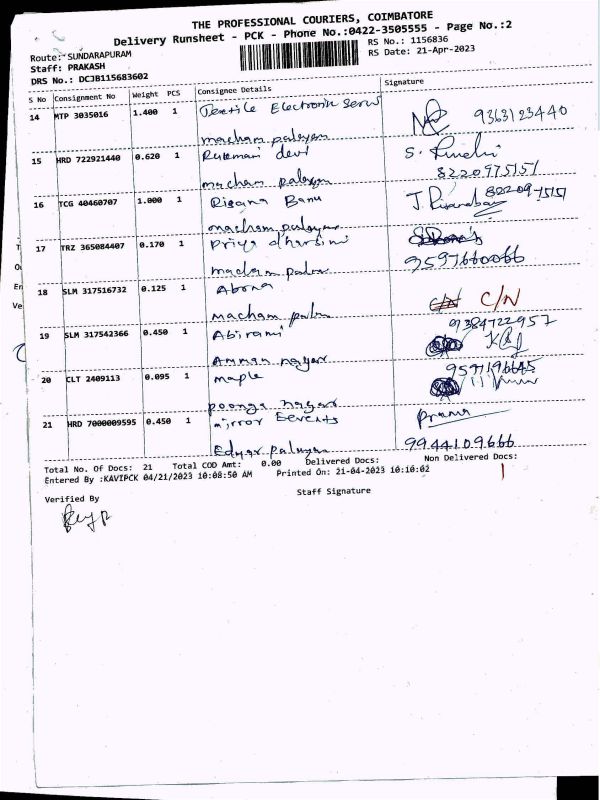 THE PROFESSIONAL COURIERS, COIMBATORE
Delivery Runsheet - PCK - Phone No.:0422-3505555 - Page No.:2
Route: SUNDARAPURAM
RS No.: 1156836
Staff: PRAKASH
RS Date: 21-Apr-2023
DRS No.: DCJB115683602
S No Consignment No Weight PCS Consignee Details Signature
14 MTP 3035016 1.400 1 Textile Electronic 9363123440
macham palayam
15 HRD 722921440 0.620 1 Rukmani devi S.
macham palayam 8220975151
16 TCG 40460707 1.000 1 Rigana Banu J.
macham palayam
17 TRZ 365084407 0.170 1 Priya dharsini
macham 9597660066
18 SLM 317516732 0.125 1 Abona C/N C/N
macham
19 SLM 317542366 0.450 1 Abirami 9384722957
Amman nagar
20 CLT 2409113 0.095 1 maple
poonga nagar
21 HRD 7000009595 0.450 1 mirror
9944109666
Total No. Of Docs: 21 Total COD Amt: 0.00 Delivered Docs: Non Delivered Docs:
Entered By :KAVIPCK 04/21/2023 10:08:50 AM Printed On: 21-04-2023 10:10:02 1
Verified By Staff Signature